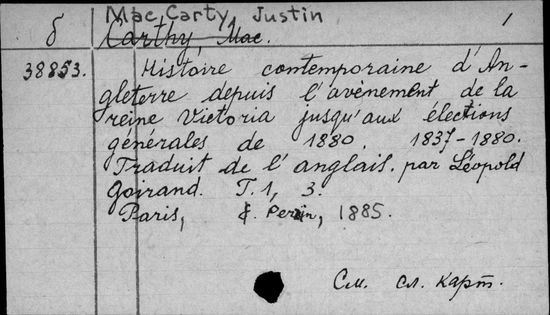 Mac Carty, Justin
1
б Carthy, Mac.
38853. Histoire contemporaine d'An-
gleterre depuis l'avènement de la
reine Victoria jusqu'aux élections
générales de 1880. 1837-1880.
Traduit de l'anglais. par Léopold
Goirand. T. 1, 3.
Paris, Perrin, 1885.
См. сл. карт.